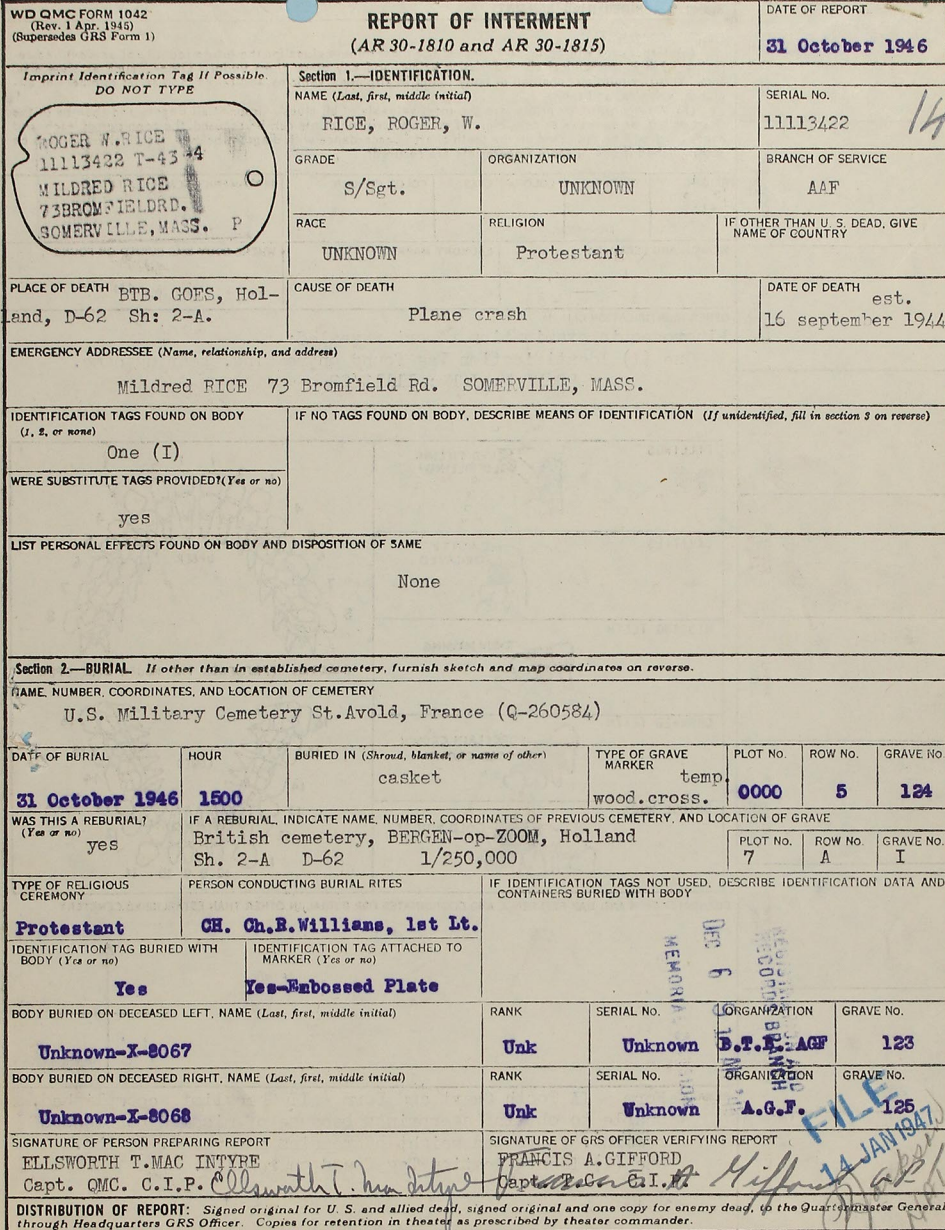 WD QMC FORM 1042
(Rev. 1 Apr. 1945)
(Supersedes GRS Form 1)
REPORT OF INTERMENT
(AR 30-1810 and AR 30-1815)
DATE OF REPORT
31 October 1946
Imprint Identification Tag If Possible.
DO NOT TYPE
ROGER W.RICE
11113422 T-43 44
MILDRED RICE
73BROMFIELDRD.
SOMERVILLE,MASS. P
Section 1.—IDENTIFICATION.
NAME (Last, first, middle initial)
RICE, ROGER, W.
SERIAL No.
11113422
14
GRADE
S/Sgt.
ORGANIZATION
UNKNOWN
BRANCH OF SERVICE
AAF
RACE
UNKNOWN
RELIGION
Protestant
IF OTHER THAN U. S. DEAD, GIVE
NAME OF COUNTRY
PLACE OF DEATH BTB. GOES, Hol-
land, D-62 Sh: 2-A.
CAUSE OF DEATH
Plane crash
DATE OF DEATH
est.
16 september 1944
EMERGENCY ADDRESSEE (Name, relationship, and address)
Mildred RICE 73 Bromfield Rd. SOMERVILLE, MASS.
IDENTIFICATION TAGS FOUND ON BODY
(1, 2, or none)
One (I)
IF NO TAGS FOUND ON BODY, DESCRIBE MEANS OF IDENTIFICATION (If unidentified, fill in section 3 on reverse)
WERE SUBSTITUTE TAGS PROVIDED?(Yes or no)
yes
LIST PERSONAL EFFECTS FOUND ON BODY AND DISPOSITION OF SAME
None
Section 2.—BURIAL. If other than in established cemetery, furnish sketch and map coordinates on reverse.
NAME, NUMBER, COORDINATES, AND LOCATION OF CEMETERY
U.S. Military Cemetery St.Avold, France (Q-260584)
DATE OF BURIAL
31 October 1946
HOUR
1500
BURIED IN (Shroud, blanket, or name of other)
casket
TYPE OF GRAVE
MARKER
temp.
wood.cross.
PLOT No.
0000
ROW No.
5
GRAVE No.
124
WAS THIS A REBURIAL?
(Yes or no)
yes
IF A REBURIAL, INDICATE NAME, NUMBER, COORDINATES OF PREVIOUS CEMETERY, AND LOCATION OF GRAVE
British cemetery, BERGEN-op-ZOOM, Holland
Sh. 2-A D-62 1/250,000
PLOT No.
7
ROW No.
A
GRAVE No.
I
TYPE OF RELIGIOUS
CEREMONY
Protestant
PERSON CONDUCTING BURIAL RITES
CH. Ch.R.Williams, 1st Lt.
IF IDENTIFICATION TAGS NOT USED, DESCRIBE IDENTIFICATION DATA AND
CONTAINERS BURIED WITH BODY
IDENTIFICATION TAG BURIED WITH
BODY (Yes or no)
Yes
IDENTIFICATION TAG ATTACHED TO
MARKER (Yes or no)
Yes-Embossed Plate
DEC 6
RECORDS BRANCH
BODY BURIED ON DECEASED LEFT, NAME (Last, first, middle initial)
Unknown-X-8067
RANK
Unk
SERIAL No.
Unknown
ORGANIZATION
B.T.B. AGF
GRAVE No.
123
BODY BURIED ON DECEASED RIGHT, NAME (Last, first, middle initial)
Unknown-X-8068
RANK
Unk
SERIAL No.
Unknown
ORGANIZATION
A.G.F.
GRAVE No.
125
FILE
14 JAN 1947
SIGNATURE OF PERSON PREPARING REPORT
ELLSWORTH T.MAC INTYRE
Capt. QMC. C.I.P. Ellsworth T. MacIntyre
SIGNATURE OF GRS OFFICER VERIFYING REPORT
FRANCIS A.GIFFORD
Francis A Gifford
DISTRIBUTION OF REPORT: Signed original for U. S. and allied dead, signed original and one copy for enemy dead, to the Quartermaster General
through Headquarters GRS Officer. Copies for retention in theater as prescribed by theater commander.